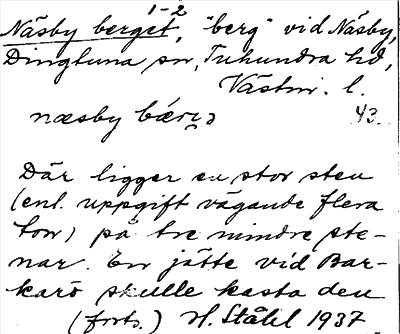 1-2
Näsby berget, "berg" vid Näsby,
Dingtuna sn, Tuhundra hd,
Västm. l.
næsby bærɟ 43.
Där ligger en stor sten
(enl. uppgift vägande flera
ton) på tre mindre ste-
nar. En jätte vid Bar-
karö skulle kasta den
(forts.) H. Ståhl 1937.